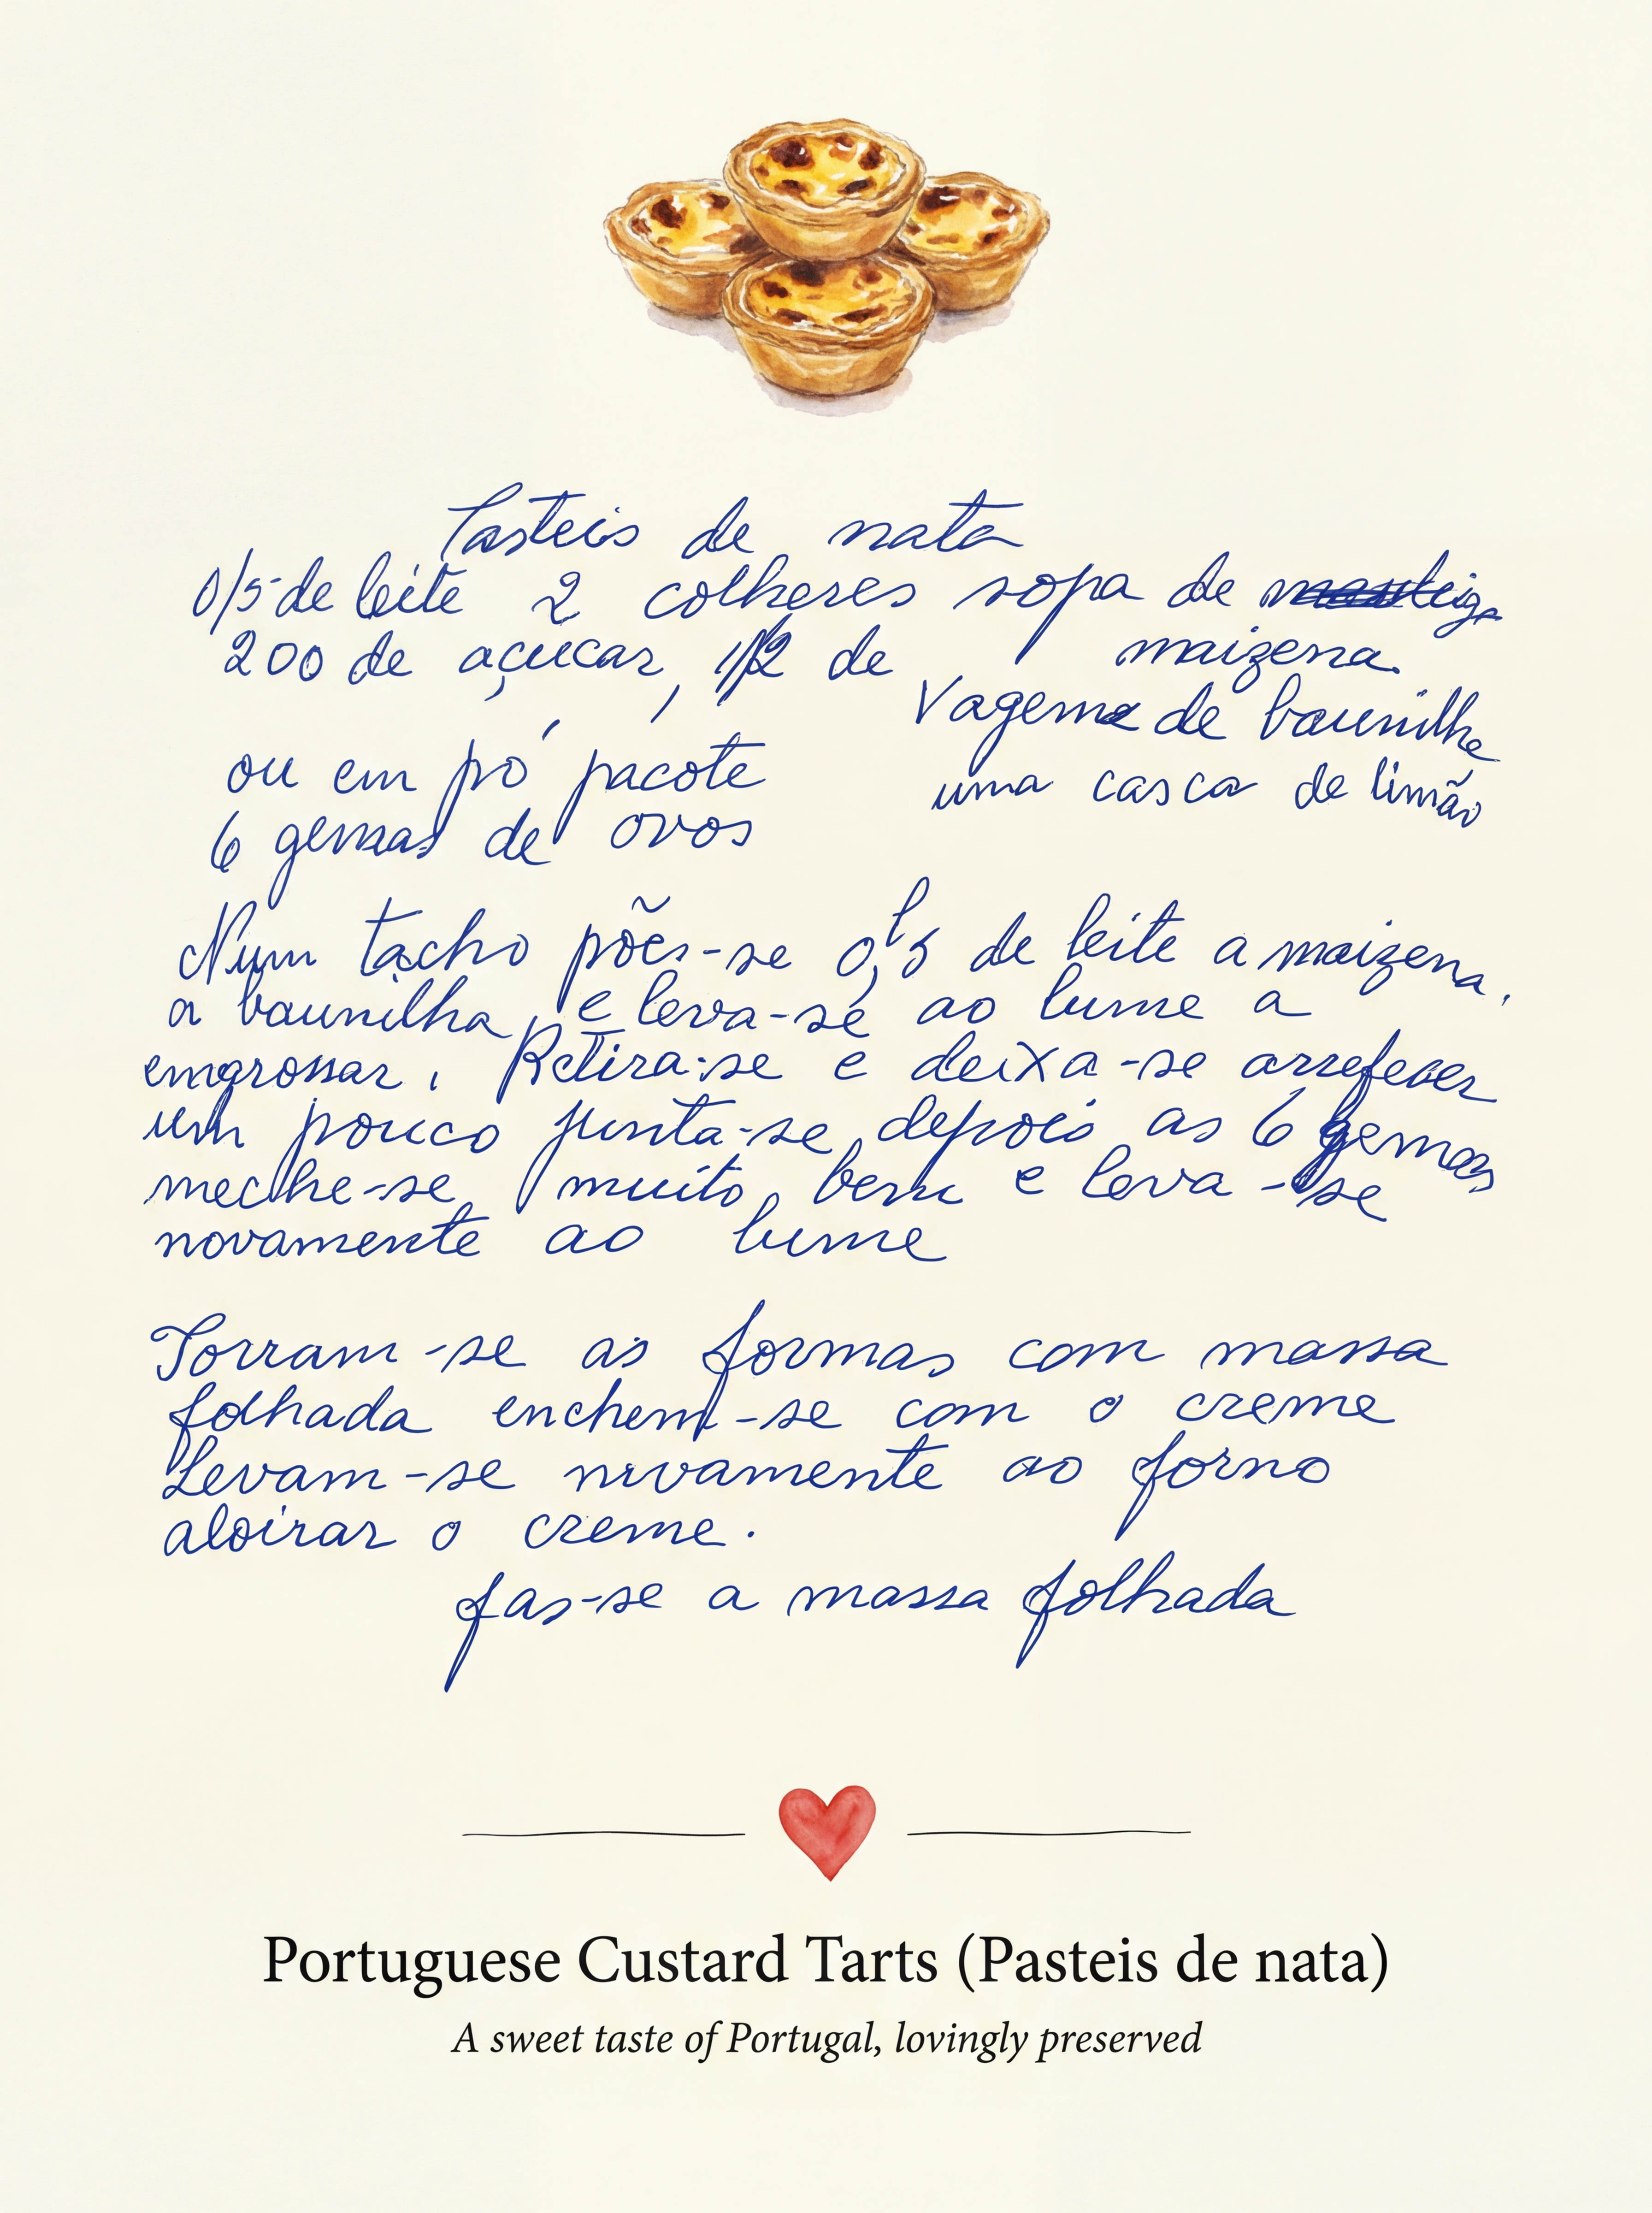 Pasteis de nata
0/5 de leite 2 colheres sopa de manteiga
200 de açucar, 1/2 de maizena.
Vagem de baunilha
ou em pó pacote
uma casca de limão
6 gemas de ovos
Num tacho põe-se 0,5 l de leite a maizena,
a baunilha, e leva-se ao lume a
emgrossar. Retira-se e deixa-se arrefecer
um pouco junta-se depois as 6 gemas
meche-se muito bem e leva-se
novamente ao lume
Forram-se as formas com massa
folhada enchem-se com o creme
Levam-se novamente ao forno
aloirar o creme.
fas-se a massa folhada
Portuguese Custard Tarts (Pasteis de nata)
A sweet taste of Portugal, lovingly preserved